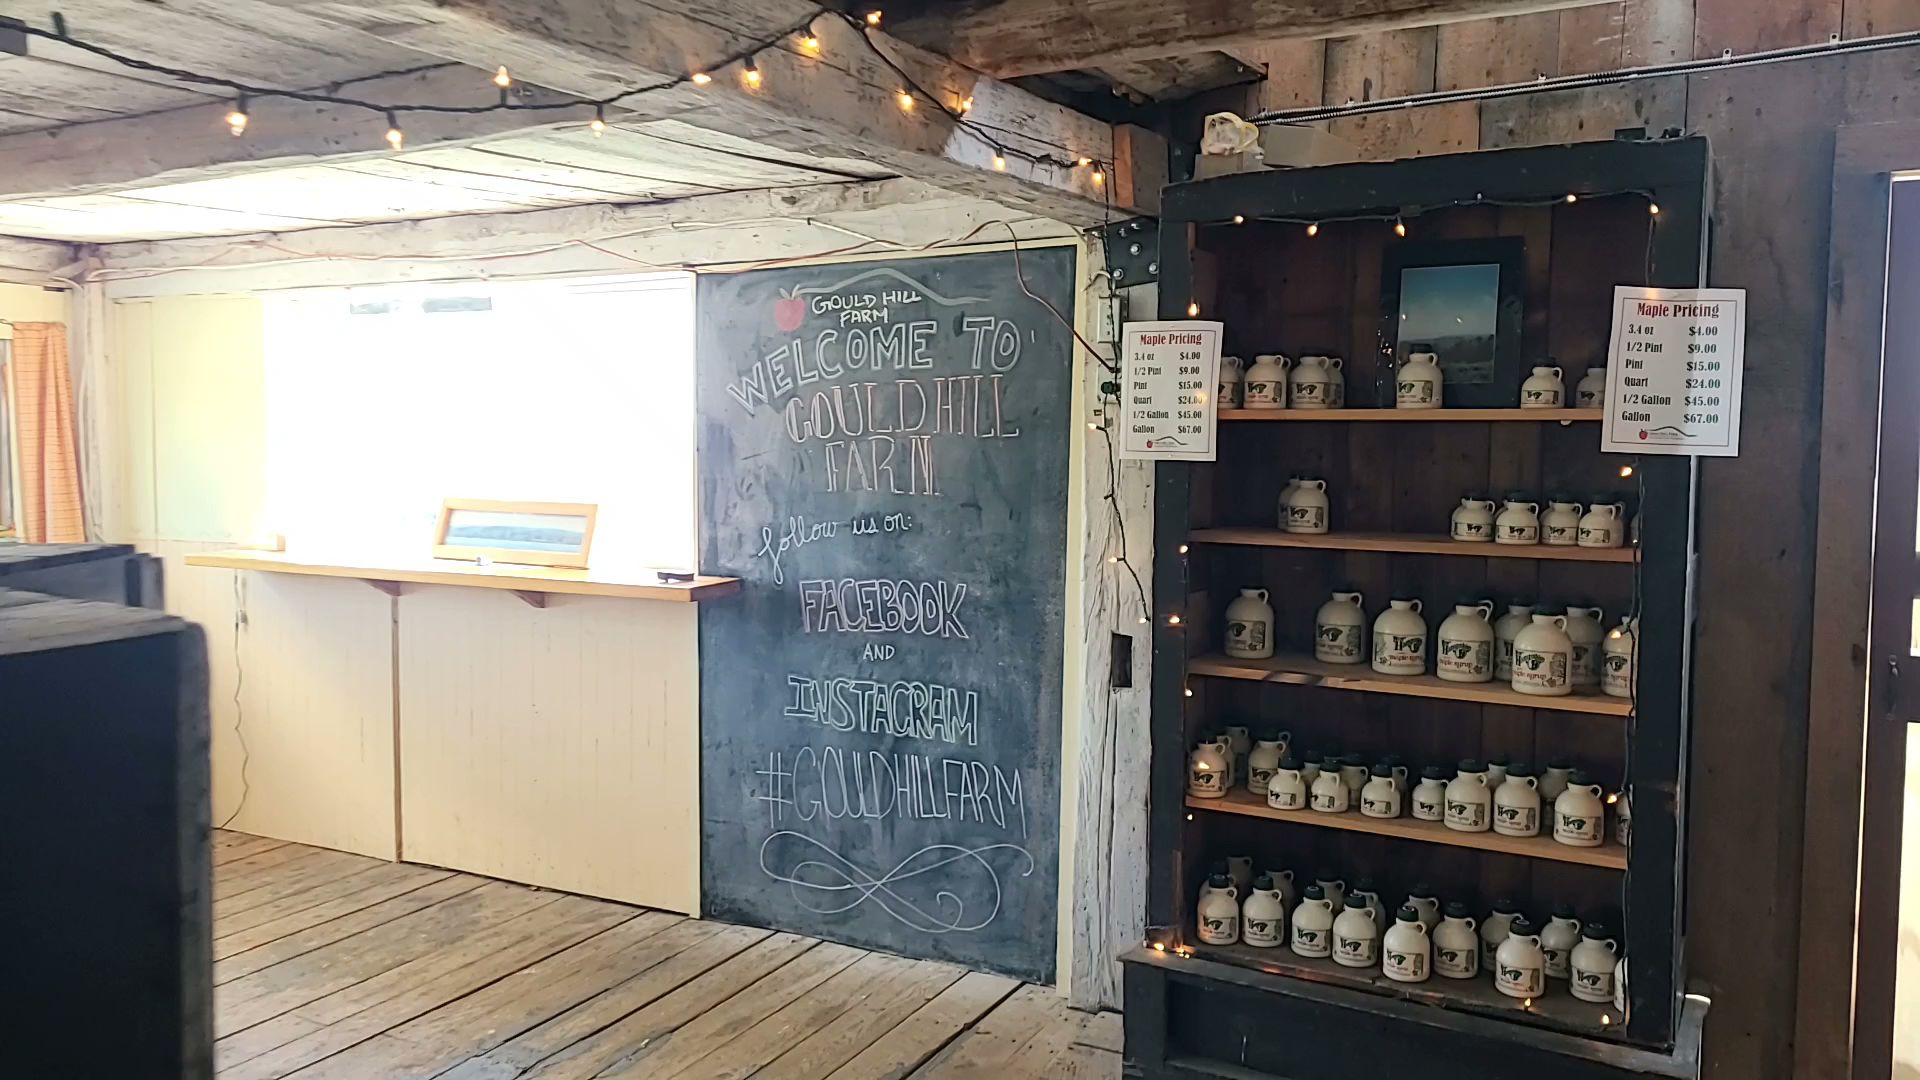 GOULD HILL
FARM
WELCOME TO
GOULD HILL
FARM
follow us on:
FACEBOOK
AND
INSTAGRAM
#GOULDHILLFARM
Maple Pricing
3.4 oz $4.00
1/2 Pint $9.00
Pint $15.00
Quart $24.00
1/2 Gallon $45.00
Gallon $67.00
Maple Pricing
3.4 oz $4.00
1/2 Pint $9.00
Pint $15.00
Quart $24.00
1/2 Gallon $45.00
Gallon $67.00
maple syrup
maple syrup
maple syrup